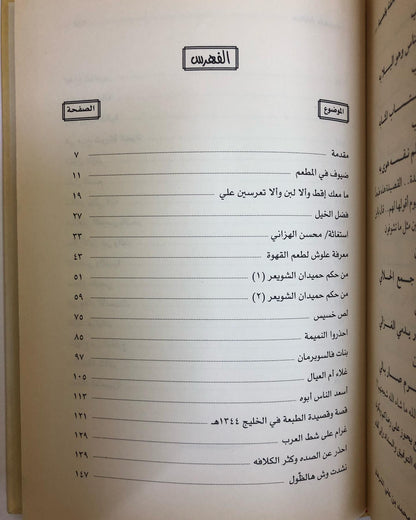 الفهرس
الموضوع الصفحة
مقدمة ٧
ضيوف في المطعم ١١
ما معك إقط وألا لبن وألا تعرسين علي ١٩
فضل الخيل ٢٧
استغاثة/ محسن الهزاني ٣٣
معرفة علوش لطعم القهوة ٤٣
من حكم حميدان الشويعر (١) ٥١
من حكم حميدان الشويعر (٢) ٥٩
لص خسيس ٧٥
احذروا النميمة ٨٥
بنات فالسوبرمان ٩٧
غلاء أم العيال ١٠٥
أسعد الناس أبوه ١١٣
قصة وقصيدة الطبعة في الخليج ١٣٤٤هـ ١٢١
غرام على شط العرب ١٢٩
احذر عن الصده وكثر الكلافه ١٣٩
نشدت وش هالظّول ١٤٧